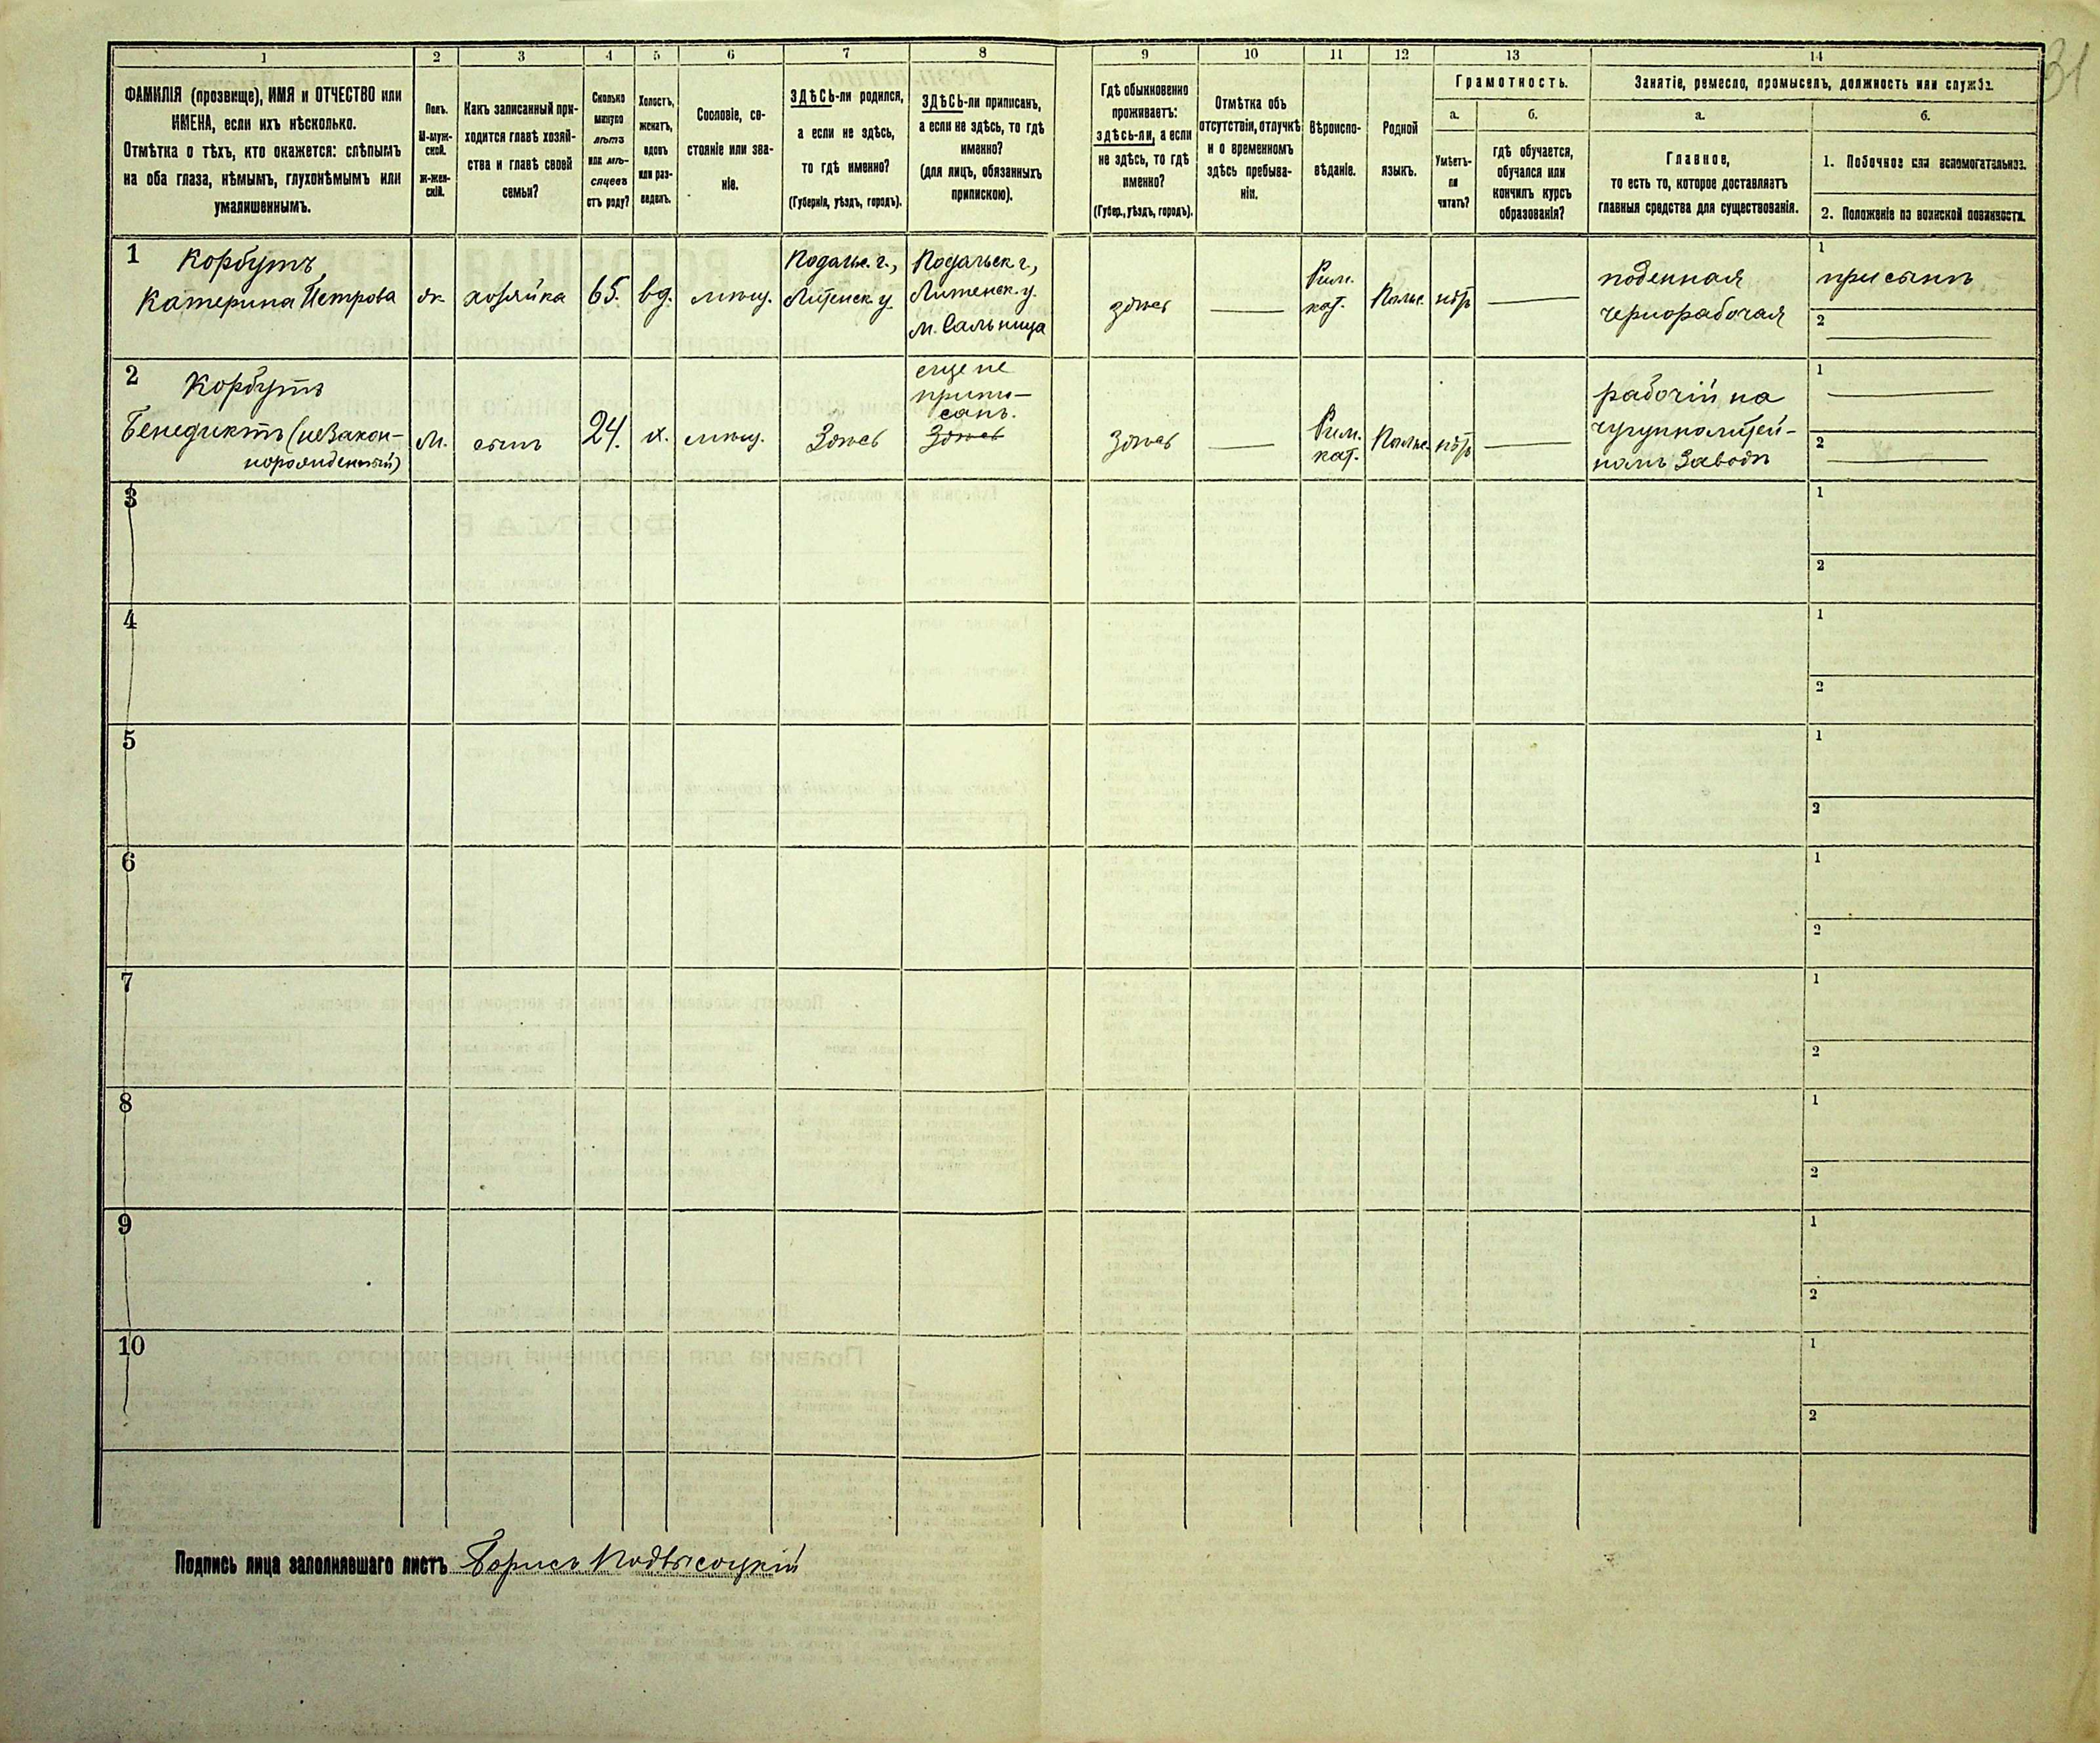 31
1
2
3
4
5
6
7
8
9
10
11
12
13
14
ФАМИЛІЯ (прозвище), ИМЯ и ОТЧЕСТВО или
ИМЕНА, если ихъ нѣсколько.
Отмѣтка о тѣхъ, кто окажется: слѣпымъ
на оба глаза, нѣмымъ, глухонѣмымъ или
умалишеннымъ.
Полъ.
М-муж-
ской.
ж-жен-
скій.
Какъ записанный при-
ходится главѣ хозяй-
ства и главѣ своей
семьи?
Сколько
минуло
лѣтъ
или мѣ-
сяцевъ
отъ роду?
Холостъ,
женатъ,
вдовъ
или раз-
веденъ.
Сословіе, со-
стояніе или зва-
ніе.
ЗДѢСЬ-ли родился,
а если не здѣсь,
то гдѣ именно?
(Губернія, уѣздъ, городъ).
ЗДѢСЬ-ли приписанъ,
а если не здѣсь, то гдѣ
именно?
(для лицъ, обязанныхъ
припискою).
Гдѣ обыкновенно
проживаетъ:
здѣсь-ли, а если
не здѣсь, то гдѣ
именно?
(Губер., уѣздъ, городъ).
Отмѣтка объ
отсутствіи, отлучкѣ
и о временномъ
здѣсь пребыва-
ніи.
Вѣроиспо-
вѣданіе.
Родной
языкъ.
Грамотность.
а.
Умѣетъ-
ли
читать?
б.
гдѣ обучается,
обучался или
кончилъ курсъ
образованія?
Занятіе, ремесло, промыселъ, должность или служба.
а.
Главное,
то есть то, которое доставляетъ
главныя средства для существованія.
б.
1. Побочное или вспомогательное.
2. Положеніе по воинской повинности.
1
Корбутъ,
Катерина Петрова
ж.
хозяйка
65.
вд.
мѣщ.
Подольс. г.,
Литенск. у.
Подольск. г.,
Литенск. у.
м. Сальница
здѣсь
Рим.
кат.
Польс.
нѣтъ
поденная
чернорабочая
1
при сынѣ
2
2
Корбутъ
Бенедиктъ (незакон-
норожденный)
м.
сынъ
24.
х.
мѣщ.
Здѣсь
еще не
припи-
санъ.
Здѣсь
Здѣсь
Рим.
кат.
Польс.
нѣтъ
рабочій на
чугуннолитей-
номъ заводѣ
1
2
3
1
2
4
1
2
5
1
2
6
1
2
7
1
2
8
1
2
9
1
2
10
1
2
Подпись лица заполнявшаго листъ Борисъ Подвысоцкій